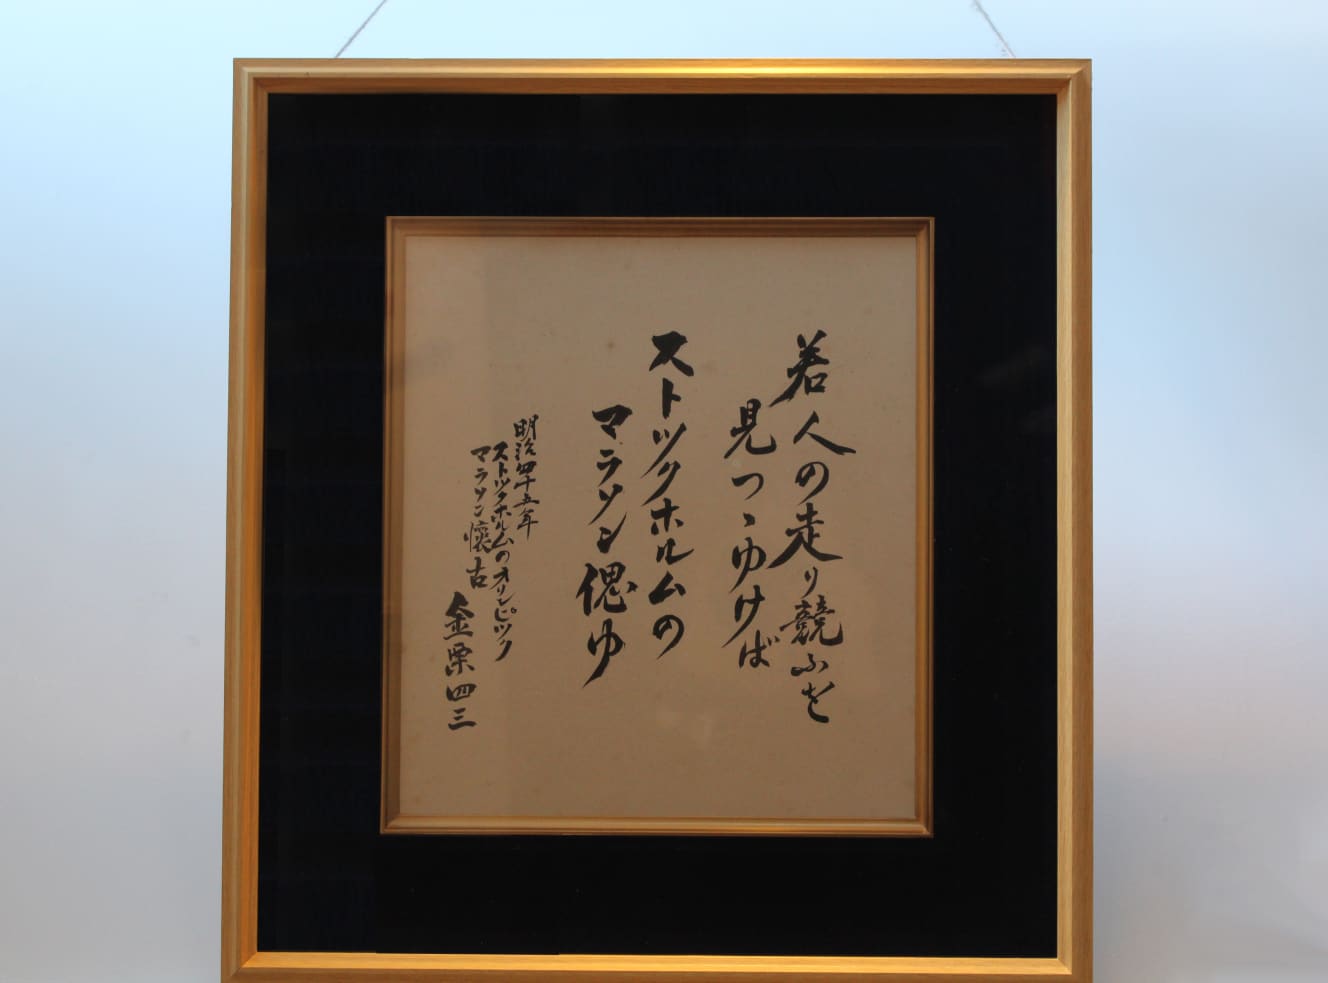 若人の走り競ふを
見つゝゆけば
ストツクホルムの
マラソン偲ゆ
明治四十五年
ストツクホルムのオリンピツク
マラソン懐古
金栗四三